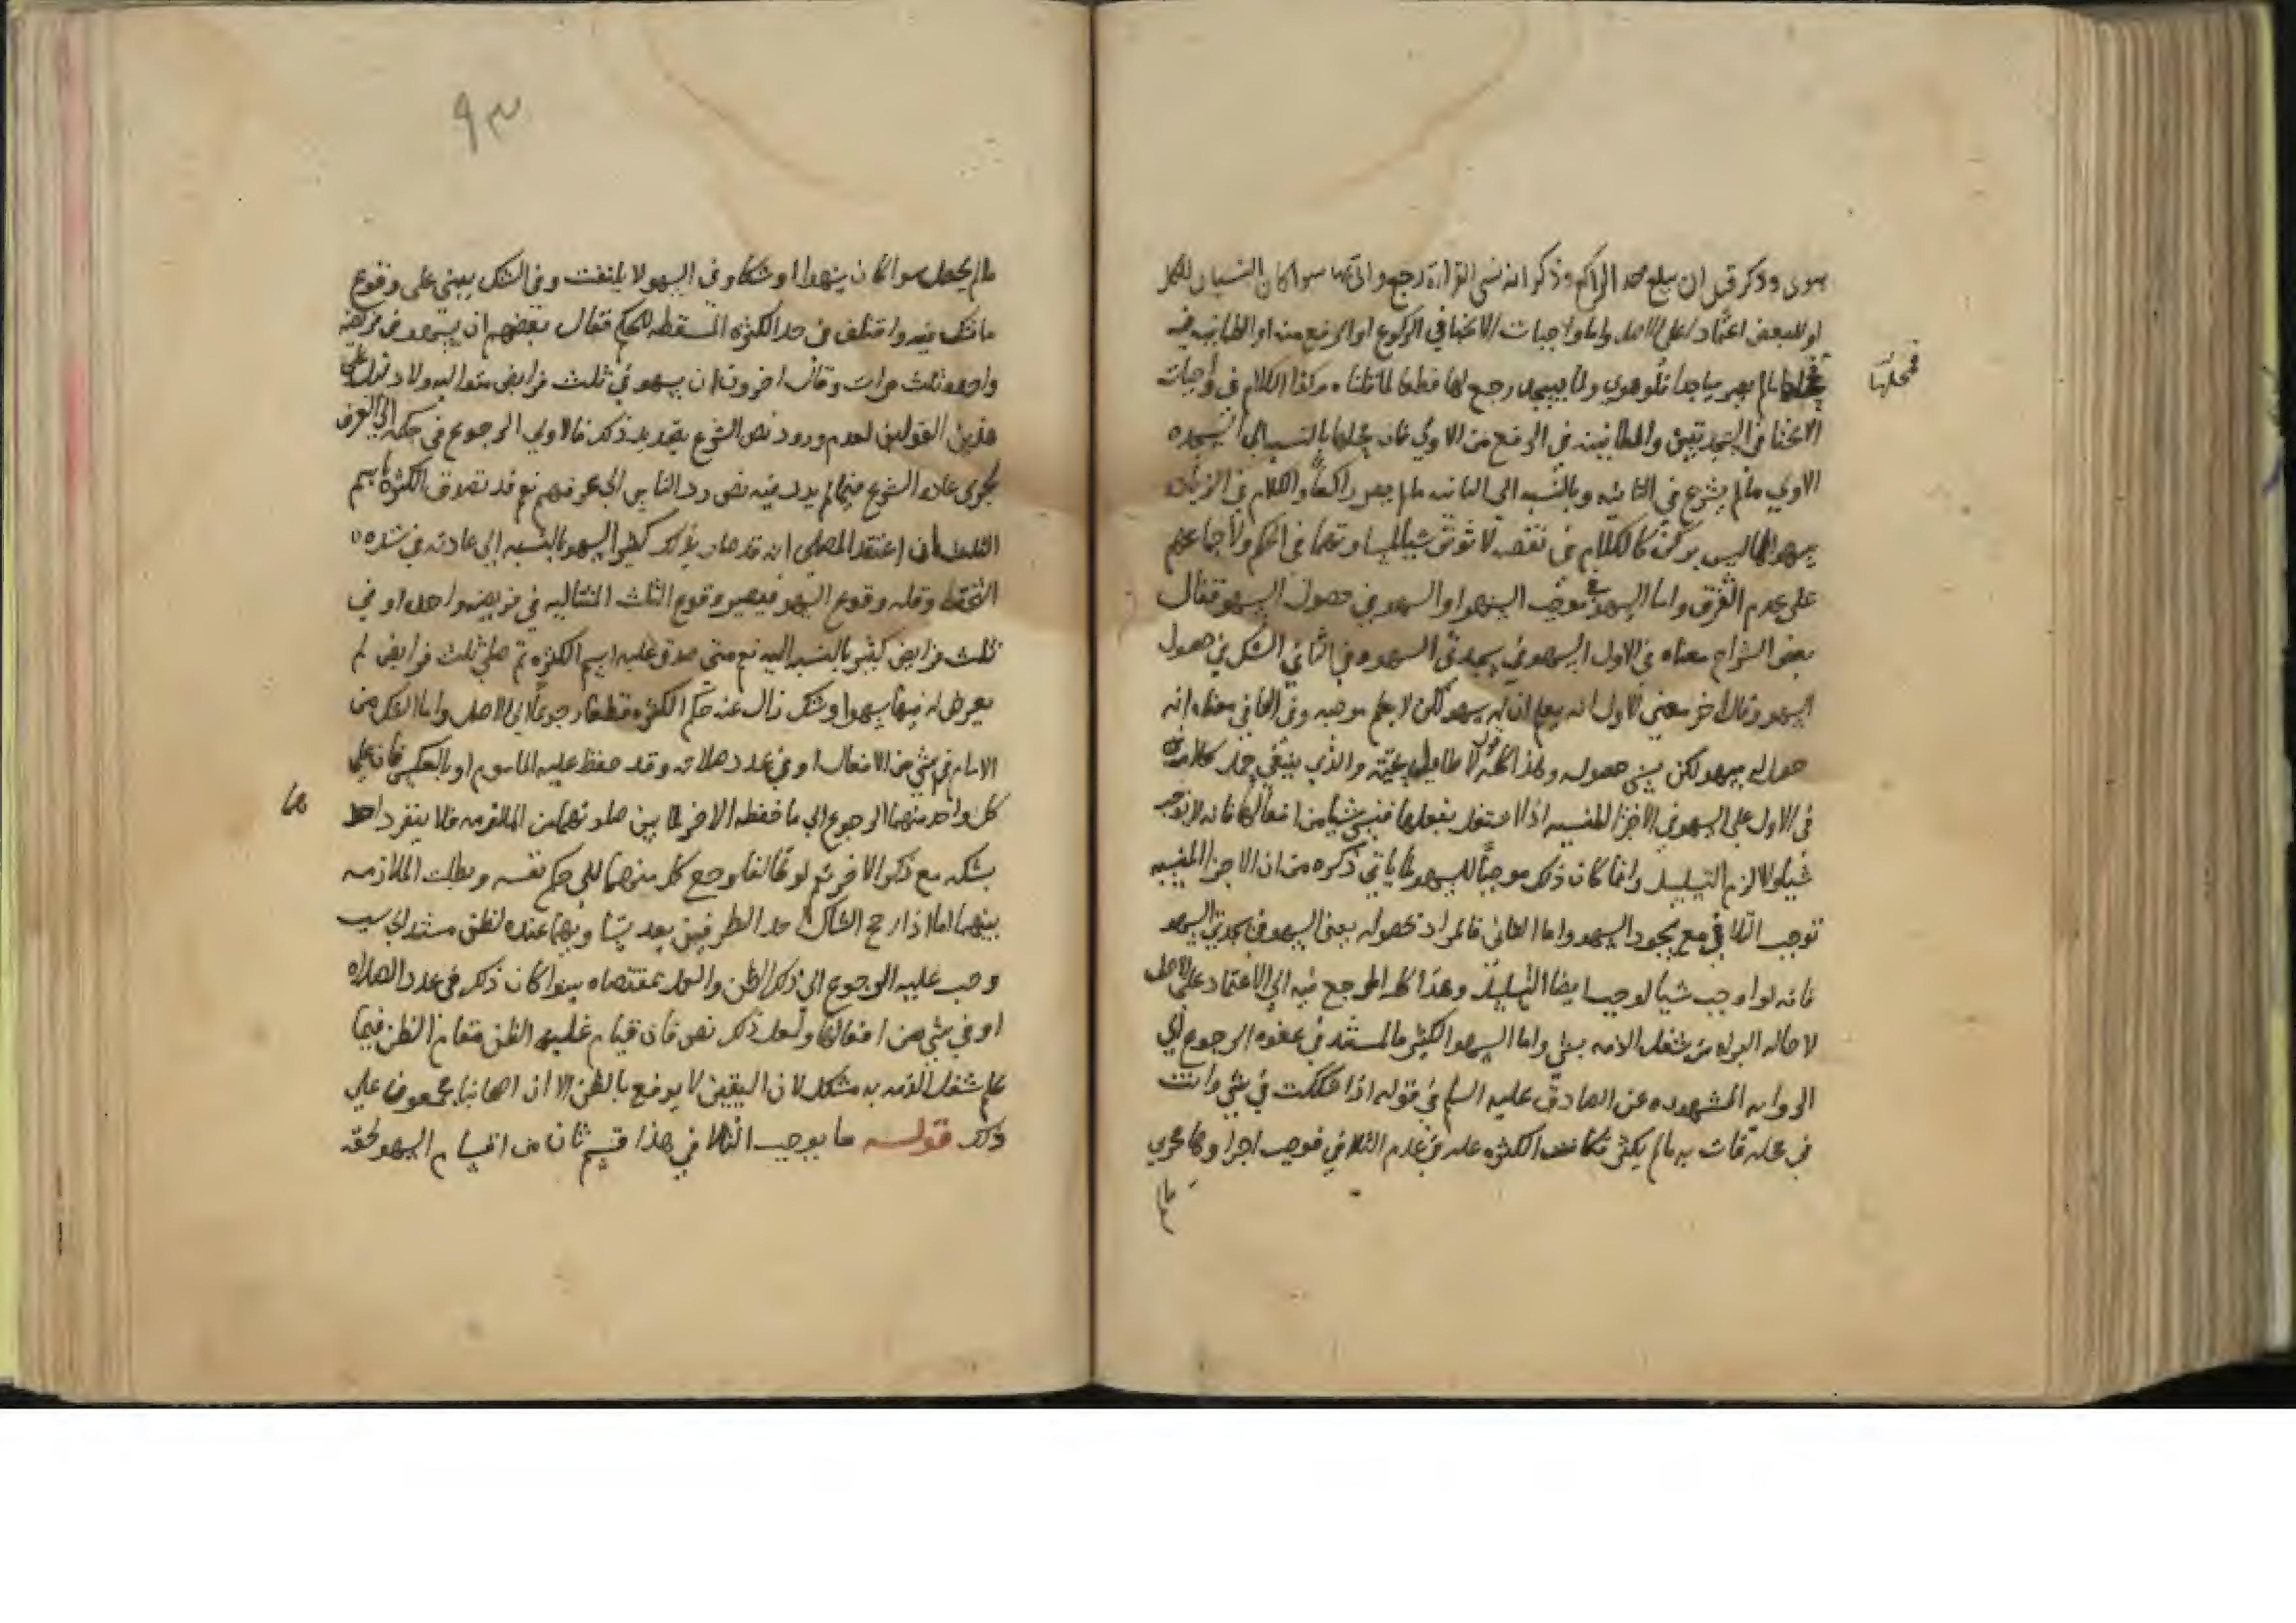 هوى وذكر قبل ان يبلغ حد الراكع وذكر انه نسى القراءة رجع واتى بها سوا كان النسيان للكل
او للبعض اعتمادا على الاصل واما واجبات الانحنا في الركوع او الرفع منه او الطمانينه فيه
فمحلها
ما لم يصر ساجدا فلو هوى ولما يسجد رجع لها قطعا لما قلناه وكذا الكلام في واجبات
الانحنا في السجدتين والطمانينه في الرفع من الاولى فان محلها بالنسبه الى السجده
الاولى ما لم يشرع في الثانيه وبالنسبه الى الثانيه ما لم يصر راكعا والكلام في الزياده
سهوا لما ليس بركن كالكلام في نقصه لا تؤثر شيا لتساويهما في الحكم ولاجماعهم
على عدم الفرق واما السهو في موجب السهو او السهو في حصول السهو فقال
بعض الشراح معناه في الاول السهو في سجدتى السهو وفي الثاني الشك في حصول
السهو وقال اخر معنى الاول انه يعلم ان له سهو لكن لا يعلم موجبه وفي الثاني معناه انه
حصل له سهو لكن نسي حصوله وهذا كله لا طايل تحته والذي ينبغي حمل كلامه
في الاول على السهو في الاجزا المنسيه اذا اشتغل بفعلها فنسي شيا من افعالها فانه لا يوجب
شيا والا لزم التسلسل وانما كان ذلك موجبا للسهو لما ياتي ذكره من ان الاجزا المنسيه
توجب التلافي مع سجود السهو واما الثاني فالمراد بحصوله يعنى السهو في سجدتى السهو
فانه لو اوجب شيا لوجب ايضا التسلسل وهذا كله المرجع فيه الى الاعتماد على الاصل
لاصاله البراه من شغل الذمه بشي واما السهو الكثير فالمستند في عفوه الرجوع الى
الروايه المشهوره عن الصادق عليه السلم في قوله اذا شككت في شي وانت
في محله فات به ما لم يكثر فكانت الكثره عله في عدم التلافي فوجب اجراوها مجرى
ما
٩٣
ما لم يحصل سوا كان سهوا او شكا وفي السهو لا يلتفت وفي الشك يبني على وقوع
ما شك فيه واختلف في حد الكثره المسقطه للحكم فقال بعضهم ان يسهو في فريضه
واحده ثلث مرات وقال اخرون ان يسهو في ثلث فرايض متواليه ولا دليل على
هذين القولين لعدم ورود نص الشرع بتحديد ذلك فالاولى الرجوع في حكمه الى العرف
لجرى عاده الشرع فيما لم يرد فيه نص رد الناس الى عرفهم نعم قد تصدق الكثره باسم
الثلث فان اعتقد المصلي انه قد صار بذلك كثير السهو بالنسبه الى عادته في شده
التحفظ وقله وقوع السهو فيصير وقوع الثلث المتتاليه في فريضه واحده او في
ثلث فرايض كثير بالنسبه اليه نعم متى صدق عليه اسم الكثره ثم صلى ثلث فرايض لم
يعرض له فيها سهو او شك زال عنه حكم الكثره قطعا رجوعا الى الاصل واما الشك من
الامام في شي من الافعال او في عدد صلاته وقد حفظ عليه الماموم او بالعكس فان على
كل واحد منهما الرجوع الى ما حفظه الاخر لما بين صلوتهما من الملازمه فلا ينفرد احد
هما
بشكه مع ذكر الاخر ثم لو تخالفا رجع كل منهما الى حكم نفسه وبطلت الملازمه
بينهما اما اذا رجح الشاك احد الطرفين بعد تساويهما عنده لظن مستند الى سبب
وجب عليه الرجوع الى ذلك الظن والعمل بمقتضاه سوا كان ذلك في عدد الصلاه
او في شي من افعالها ولعل ذلك نص فان قيام غلبه الظن مقام الظن فيما
علم شغل الذمه به مشكل لان اليقين لا يرفع بالظن الا ان اصحابنا مجمعون على
ذلك قوله ما يوجب التلافي هذا قسم ثان من اقسام السهو لحقه